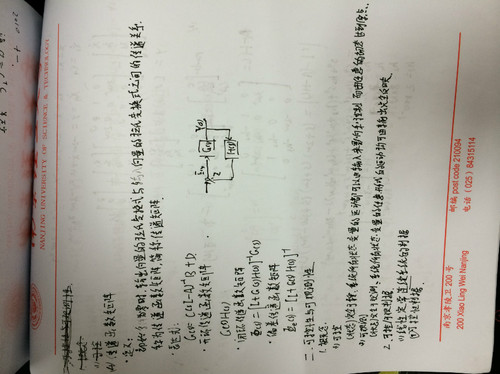 NANJING UNIVERSITY OF SCIENCE & TECHNOLOGY
(4) 传递函数矩阵
·定义:
初始条件为零时,输出向量的拉氏变换式与输入向量的拉氏变换式之间的传递关系
称为传递函数矩阵,简称传递矩阵.
·表达式:
G(s)= C(sI-A)⁻¹B+D
·开环传递函数矩阵
G(s)H(s)
·闭环传递函数矩阵
Φ(s)=[I+G(s)H(s)]⁻¹G(s)
·偏差传递函数矩阵
Φe(s)=[I+G(s)H(s)]⁻¹
G(s)
H(s)
二.可控性与可观测性
1.概念.
1)可控
(状态)完全可控,系统所有状态变量的运动都可以由输入来影响和控制 而由任意的初态达到原点.
2)可观测
(状态)完全可观测,系统所有状态变量的任意形式的运动均可由输出完全反映
2.可控/可观判据
(1)线性定常连续系统的判据
①可控性判据.
南京孝陵卫 200 号
200 Xiao Ling Wei Nanjing
邮编 post code 210094
电话(025)84315114